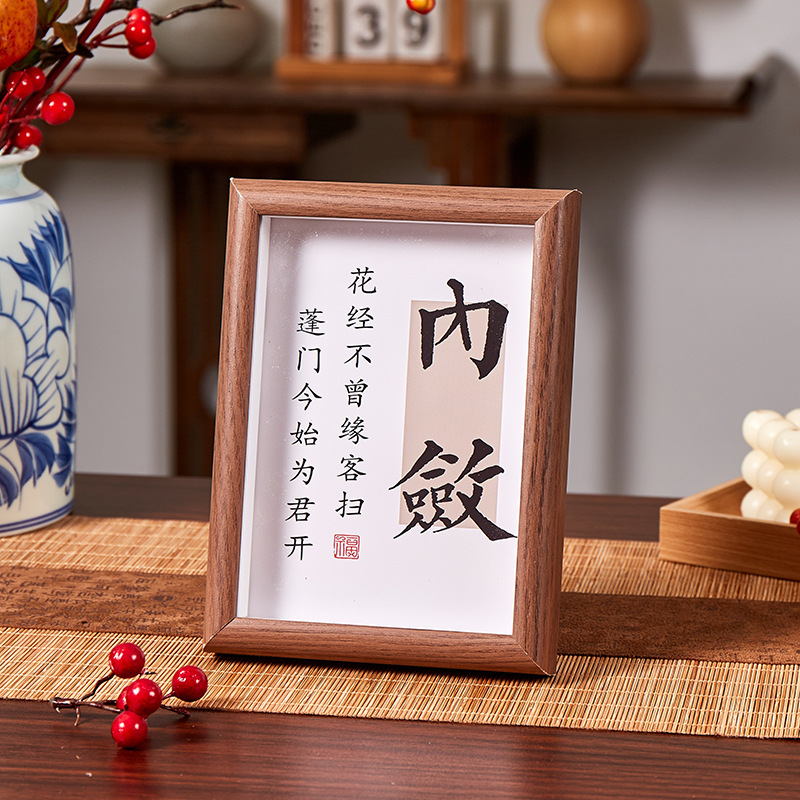 内斂
花经不曾缘客扫
蓬门今始为君开
福
39